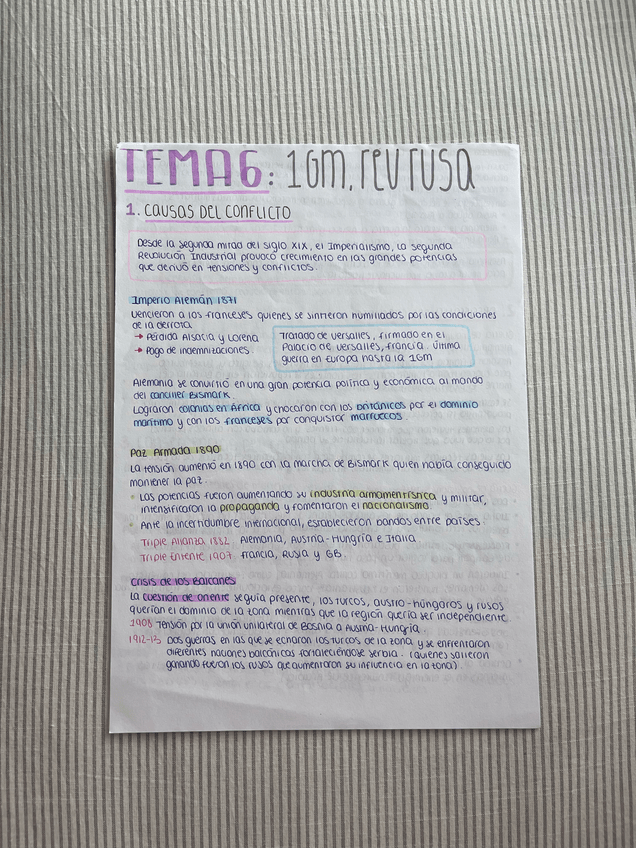 TEMA6: 1GM, rev rusa
1. CAUSAS DEL CONFLICTO
Desde la segunda mitad del siglo XIX, el Imperialismo, la segunda
Revolución Industrial provocó crecimiento en las grandes potencias
que derivó en tensiones y conflictos.
Imperio Alemán 1871
Vencieron a los franceses quienes se sintieron humillados por las condiciones
de la derrota
→ Pérdida Alsacia y Lorena
→ Pago de indemnizaciones.
Tratado de Versalles, firmado en el
Palacio de Versalles, Francia. Última
guerra en Europa hasta la 1GM
Alemania se convirtió en una gran potencia política y económica al mando
del canciller Bismark.
Lograron colonias en África y chocaron con los británicos por el dominio
marítimo y con los franceses por conquistar Marruecos.
Paz Armada 1890
La tensión aumentó en 1890 con la marcha de Bismark quien había conseguido
mantener la paz.
• Las potencias fueron aumentando su industria armamentística y militar,
intensificaron la propaganda y fomentaron el nacionalismo.
• Ante la incertidumbre internacional, establecieron bandos entre países.
Triple Alianza 1882 Alemania, Austria-Hungría e Italia
Triple Entente 1907 Francia, Rusia y GB.
Crisis de los Balcanes
La cuestión de oriente seguía presente, los turcos, austro-húngaros y rusos
querían el dominio de la zona mientras que la región quería ser independiente
1908 Tensión por la unión unilateral de Bosnia a Austria-Hungría.
1912-13 Dos guerras en las que se echaron los turcos de la zona y se enfrentaron
diferentes naciones balcánicas fortaleciéndose Serbia. (quienes salieron
ganando fueron los rusos que aumentaron su influencia en la zona)